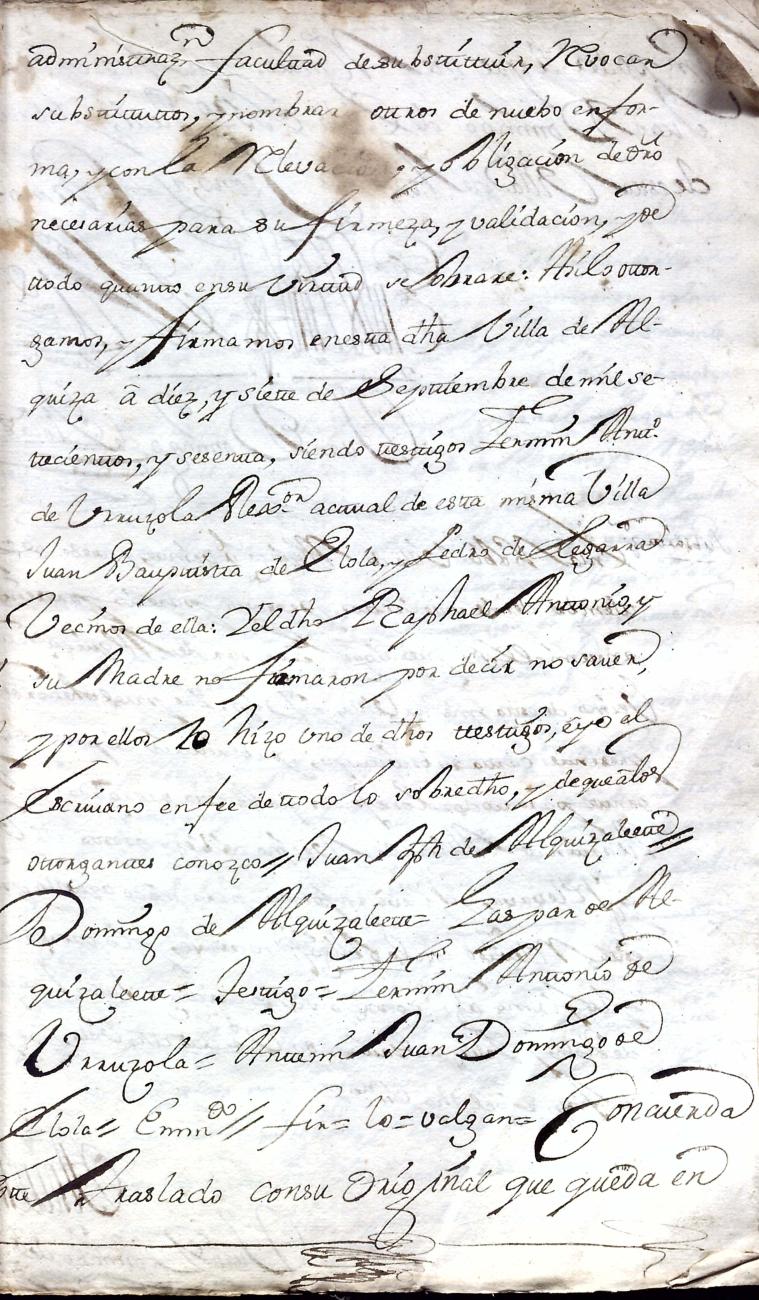 administraz.n facultad de substittuir, Revocar
substituttos, y nombrar ottros de nuebo en for-
ma, y con la Relevacion, y obligazion de dro
necesarias para su firmeza, y validacion, y de
ttodo quantto en su Virttud se obrare: Asi lo ottor-
gamos, y firmamos en esta dha Villa de Al-
quiza â diez, y siette de Septtiembre de mil se-
ttecienttos, y sesentta, siendo ttesttigos Fermin Antt.o
de Urruzola Rex.or acttual de esta misma Villa
Juan Bauptistta de Elola, y Pedro de Legarra
Vecinos de ella: Y el dho Raphael Anttonio, y
su Madre no firmaron por decir no saver,
y por ellos lo hizo uno de dhos ttesttigos, e yo el
Escrivano en fee de ttodo lo sobredho, y de que â los
ottorganttes conozco // Juan Jph de Alquizaleette //
Domingo de Alquizaleette = Gaspar de Al-
quizaleette = Testtigo = Fermin Antonio de
Urruzola = Anttemi Juan Domingo de
Elola = Emm.do // fir = lo = valgan = Concuerda
este traslado con su Original que queda en